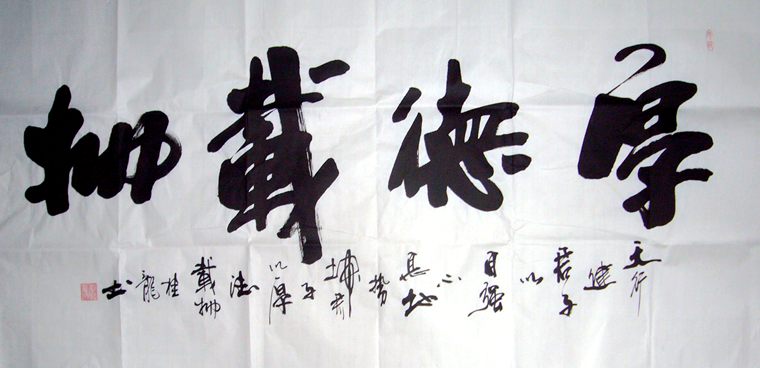 厚德載物
天行健君子以自强不息地势坤君子以厚德載物桂龍书